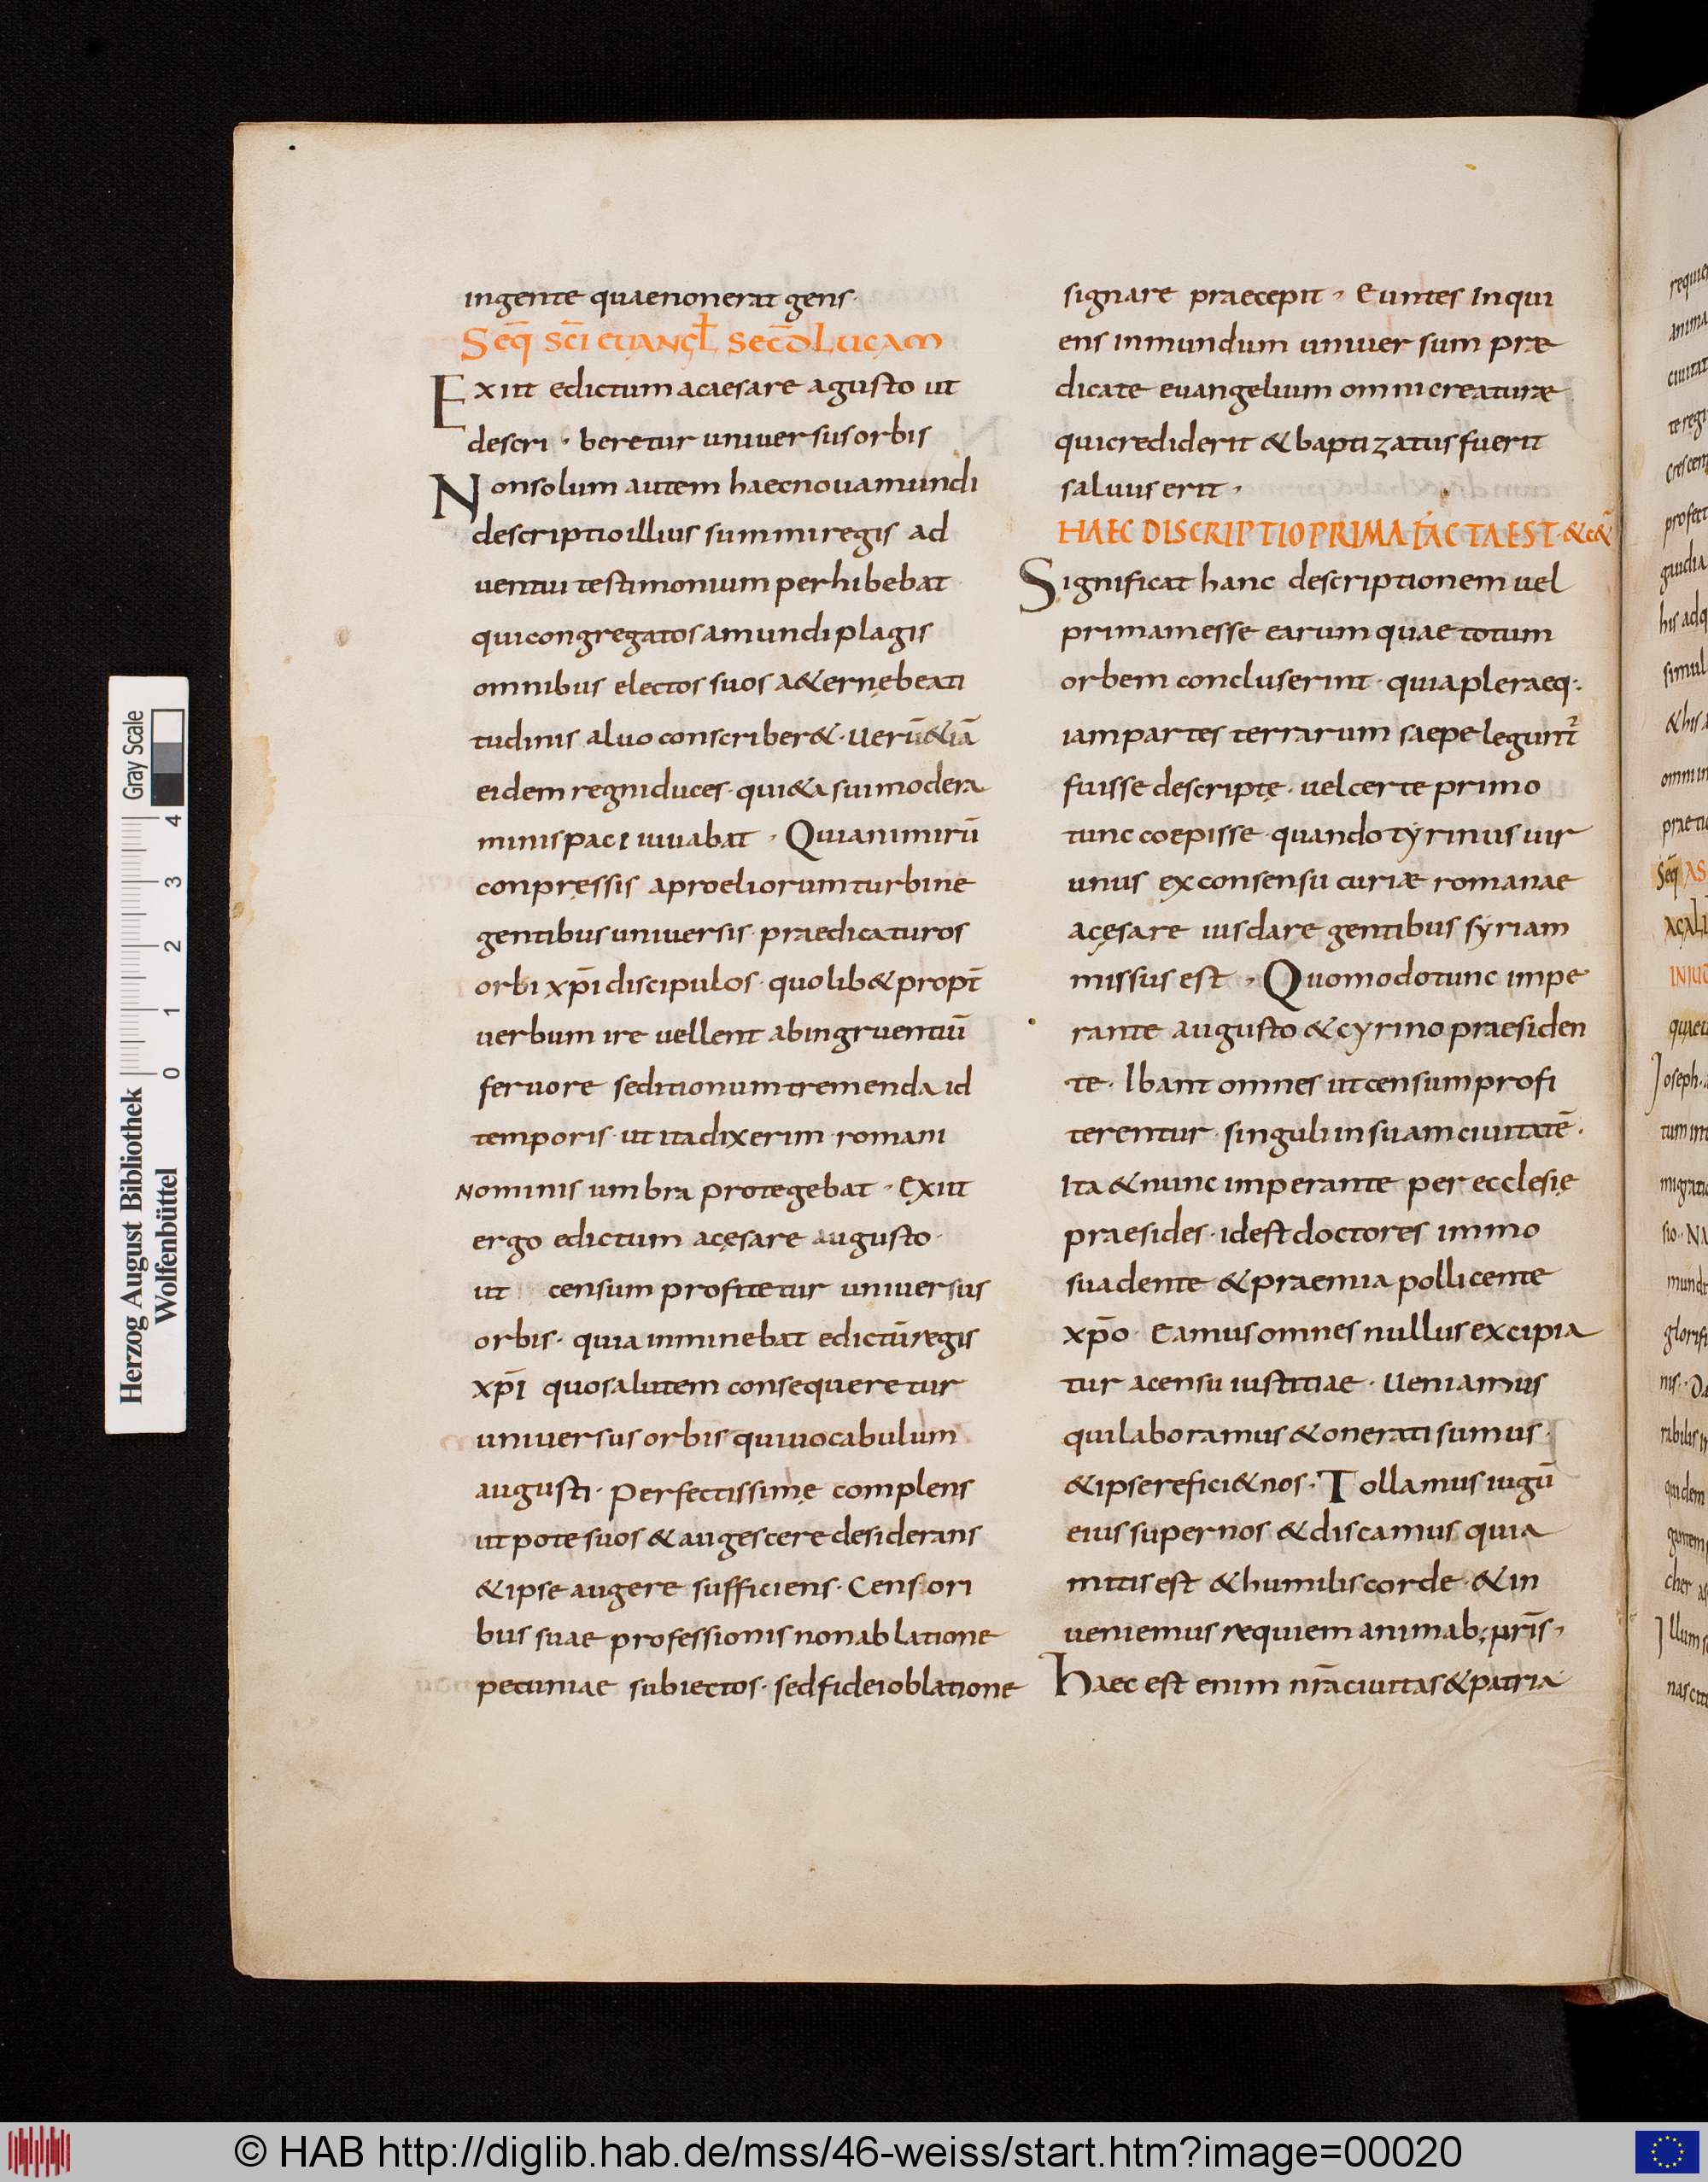 ingente quae non erat gens·
Seq̄ sc̄i euangƚ sec̄d Lucam
Exiit edictum a caesare agusto ut
descri · beretur uniuersus orbis
Non solum autem haec noua mundi
descriptio illius summi regis ad
uentui testimonium perhibebat
qui congregatos a mundi plagis
omnibus electos suos a&ernę beati
tudinis aluo conscriber&· Uerū &iā
eidem regni duces· qui &a sui modera
minis paci iuuabat · Quia nimirū
conpręssis a proeliorum turbine
gentibus uniuersis· praedicaturos
orbi xp̄i discipulos· quolib& propt̄
uerbum ire uellent ab ingruentiū
feruore seditionum tremenda id
temporis· ut ita dixerim romani
Nominis umbra protegebat · Exiit
ergo edictum a cęsare augusto·
ut censum profitetur uniuersus
orbis· quia imminebat edictū regis
xp̄i quo salutem consequeretur
uniuersus orbis qui uocabulum
augusti· Perfectissimę complens
utpote suos & augescere desiderans
& ipse augere sufficiens· Censori
bus suae professionis non ablatione
pecuniae subiectos· sed fidei oblatione
signare praecepit · Euntes inqui
ens in mundum uniuersum præ
dicate euangelium omni creaturæ
qui crediderit & baptizatus fuerit
saluus erit ·
HAEC DISCRIPTIO PRIMA FACTA EST·&c&
Significat hanc descriptionem uel
primam esse earum quae totum
orbem concluserint· quia pleraeq:·
iam partes terrarum saepe legunt̄
fuisse descriptę· uel certe primo
tunc coepisse· quando tyrinus uir
unus ex consensu curiæ romanae
a cęsare ius dare gentibus syriam
missus est · Quomodo tunc impe
rante augusto & cyrino praesiden
te· Ibant omnes ut censum profi
terentur· singuli in suam ciuitatē·
Ita & nunc imperante per ecclesię
praesides· id est doctores immo
suadente & praemia pollicente
xp̄o· Eamus omnes nullus excipia
tur a censu iustitiae· Ueniamus
qui laboramus & onerati sumus·
& ipse refici& nos· Tollamus iugū
eius super nos & discamus quia
mitis est & humilis corde· & in
ueniemus requiem animab; nr̄is·
Haec est enim nr̄a ciuitas & patria
Herzog August Bibliothek
Wolfenbüttel
Gray Scale
0 1 2 3 4
© HAB http://diglib.hab.de/mss/46-weiss/start.htm?image=00020